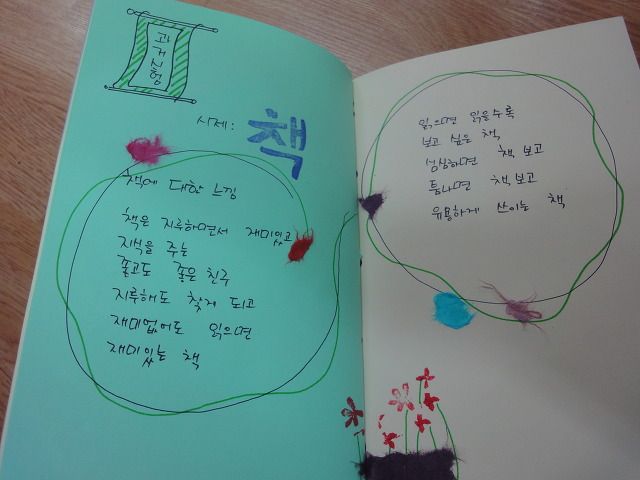 과거시험
시제: 책
책에 대한 느낌
책은 지루하면서 재미있고
지식을 주는
좋고도 좋은 친구
지루해도 찾게 되고
재미없어도 읽으면
재미있는 책
읽으면 읽을수록
보고 싶은 책
심심하면 책 보고
틈나면 책 보고
유용하게 쓰이는 책